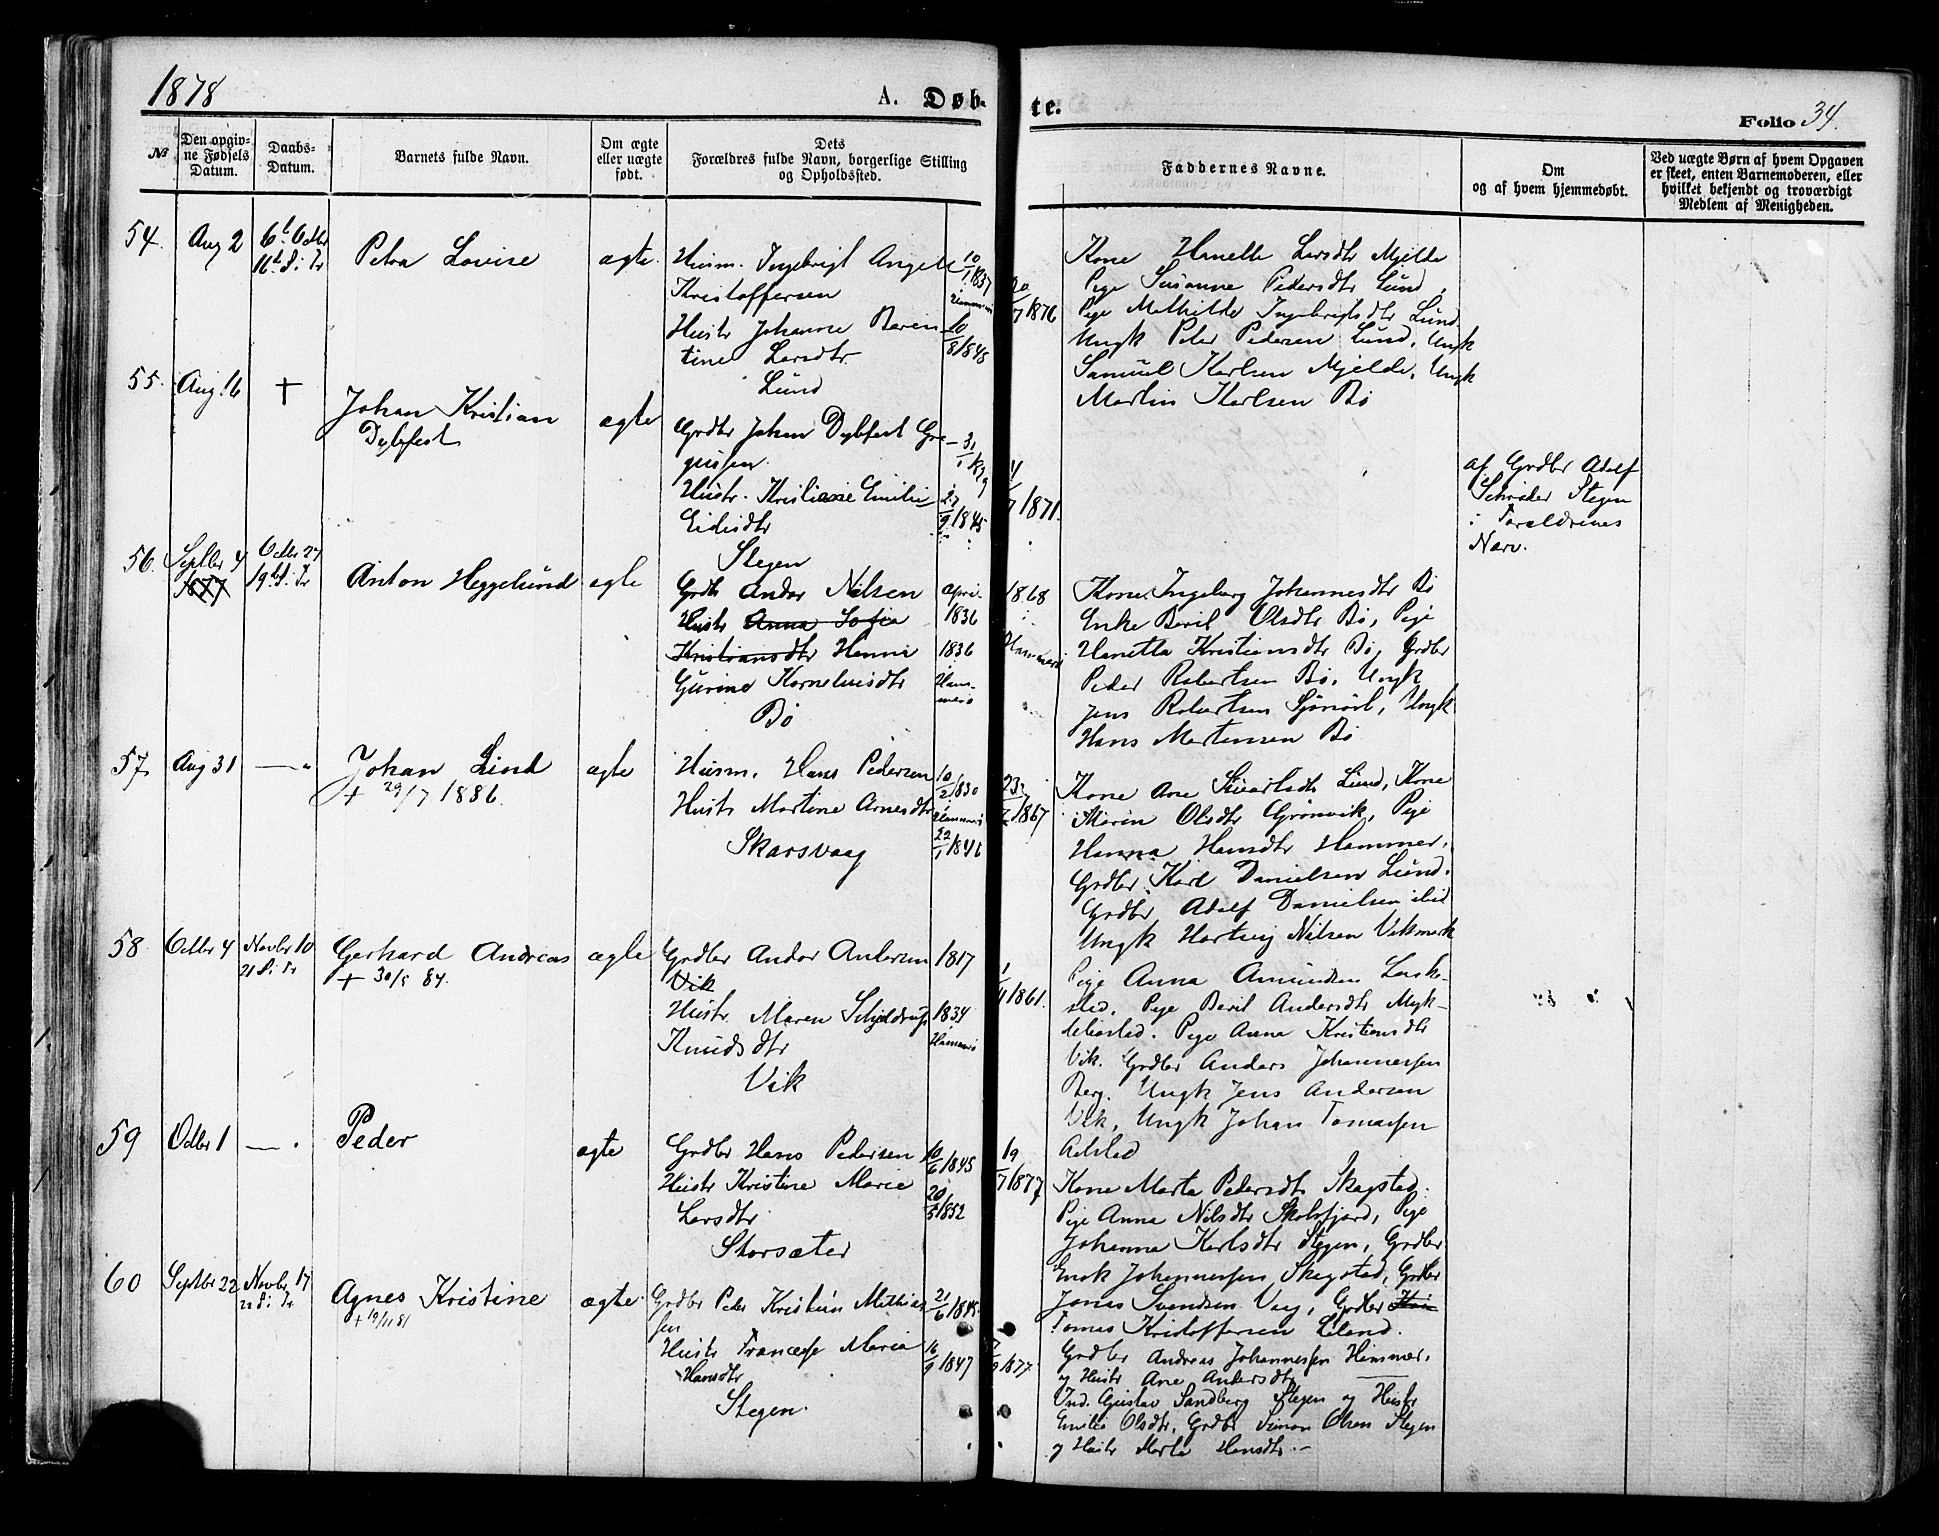 1878
A. Døb-
te.
Folio 34.
№
Den opgiv-
ne Fødsels
Datum.
Daabs-
Datum.
Barnets fulde Navn.
Om ægte
eller uægte
født.
Dets
Forældres fulde Navn, borgerlige Stilling
og Opholdssted.
Faddernes Navne.
Om
og af hvem hjemmedøbt.
Ved uægte Børn af hvem Opgaven
er skeet, enten Barnemoderen, eller
hvilket bekjendt og troværdigt
Medlem af Menigheden.
54. Aug 2
6t Octbr
16d S. i Tr
Petra Lovise
ægte.
Husm. Ingebrigt Angell
Kristoffersen
Hustr Johanne Beren-
tine Larsdtr
Lund
10/1 1837
10/8 1848
/7 1876
Kone Hanette Larsdtr Mjelde
Pige Susanne Pedersdtr Lund,
Pige Mathilde Ingebrigtsdtr Lund
Ungk Peter Pedersen Lund, Ungk
Samuel Karlsen Mjelde, Ungk
Martin Karlsen Bø
55. Aug 16
†
Johan Kristian
Dybfest
ægte
Grdbr Johan Dybfest Gre-
gusen.
Hustr. Kristiane Emilie
Eidisdtr
Stegen
27/9 1845
4/7 1871.
af Grdbr Adolf
Schrøder Stegen
i Forældrenes
Nærv.
56. Septbr 4
1877
Octbr 27
19d S. i Tr
Anton Heggelund
ægte
Grdbr Andor Nilsen
Hustr Anna Sofia
Kristiansdtr Hanna
Gurine Korneliusdtr
Bø
april
1836
1836
Ham-
merø
1868
Hammerø
Kone Ingeborg Johannesdtr Bø
Enke Beril Olsdtr Bø, Pige
Hanetta Kristiansdtr Bø, Grdbr
Peder Robertsen Bø, Ungk
Jens Robertsen
Ungk
Hans Martensen Bø
57. Aug 31
— "
Johan Lind
† 29/7 1886.
ægte
Husm. Hans Pedersen
Hustr Martine Arnesdtr
Skarsvaag
10/2 1830
Hammerø
22/1 1846
23/ 1867
Kone Ane
Lund, Kone
Maren Olsdtr Grønvik, Pige
Hanna Hansdtr Hammer,
Grdbr Karl Danielsen Lund.
Grdbr Adolf Danielsen ibid
Ungk Hartvig Nilsen Vikmark
58. Octbr 4
Novbr 10
21 S. i Tr
Gerhard Andreas
† 30/5 84.
ægte
Grdbr Andor Andersen
Vik
Hustr. Maren Schjeldrup
Knudsdtr
Vik
1817
1834
Hammerø
1/ 1861.
Pige Anna Amundsen Leske-
sted, Pige Beril Andersdtr Myk-
lebostad. Pige Anna Kristiansdtr
Vik. Grdbr Anders Johannessen
Berg. Ungk Jens Andersen
Vik, Ungk Johan Tomassen
Aalstad
59 Octbr 1
— "
Peder
ægte
Grdbr Hans Pedersen
Hustr Kristine Marie
Larsdtr
Storsæter
10/6 1845
20/5 1852
19/7 1877
Kone Marta Pedersdtr Skagstad.
Pige Anna Nilsdtr Skotsfjord, Pige
Johanna Karlsdtr Stegen, Grdbr
Enok Johannessen Skagstad, Grdbr
Jonas Svendsen Vaag, Grdbr
Tomas Kristoffersen Leland.
60 Septbr 22
Novbr 17
22 S. i Tr.
Agnes Kristine
† 19/11 81
ægte
Grdbr Peder Kristian Mathias
sen
Hustr Francesse Maria
Hansdtr
Stegen.
21/6 1845
16/9 1847
7/9 1877
Grdbr Andreas Johannessen Hammer,
og Hustr Ane Andersdtr
Ind. Gustav Sandberg Stegen og Hustr
Emilie Olsdtr, Grdbr Simon Olsen Stegen
og Hustr Marta Hansdtr.—